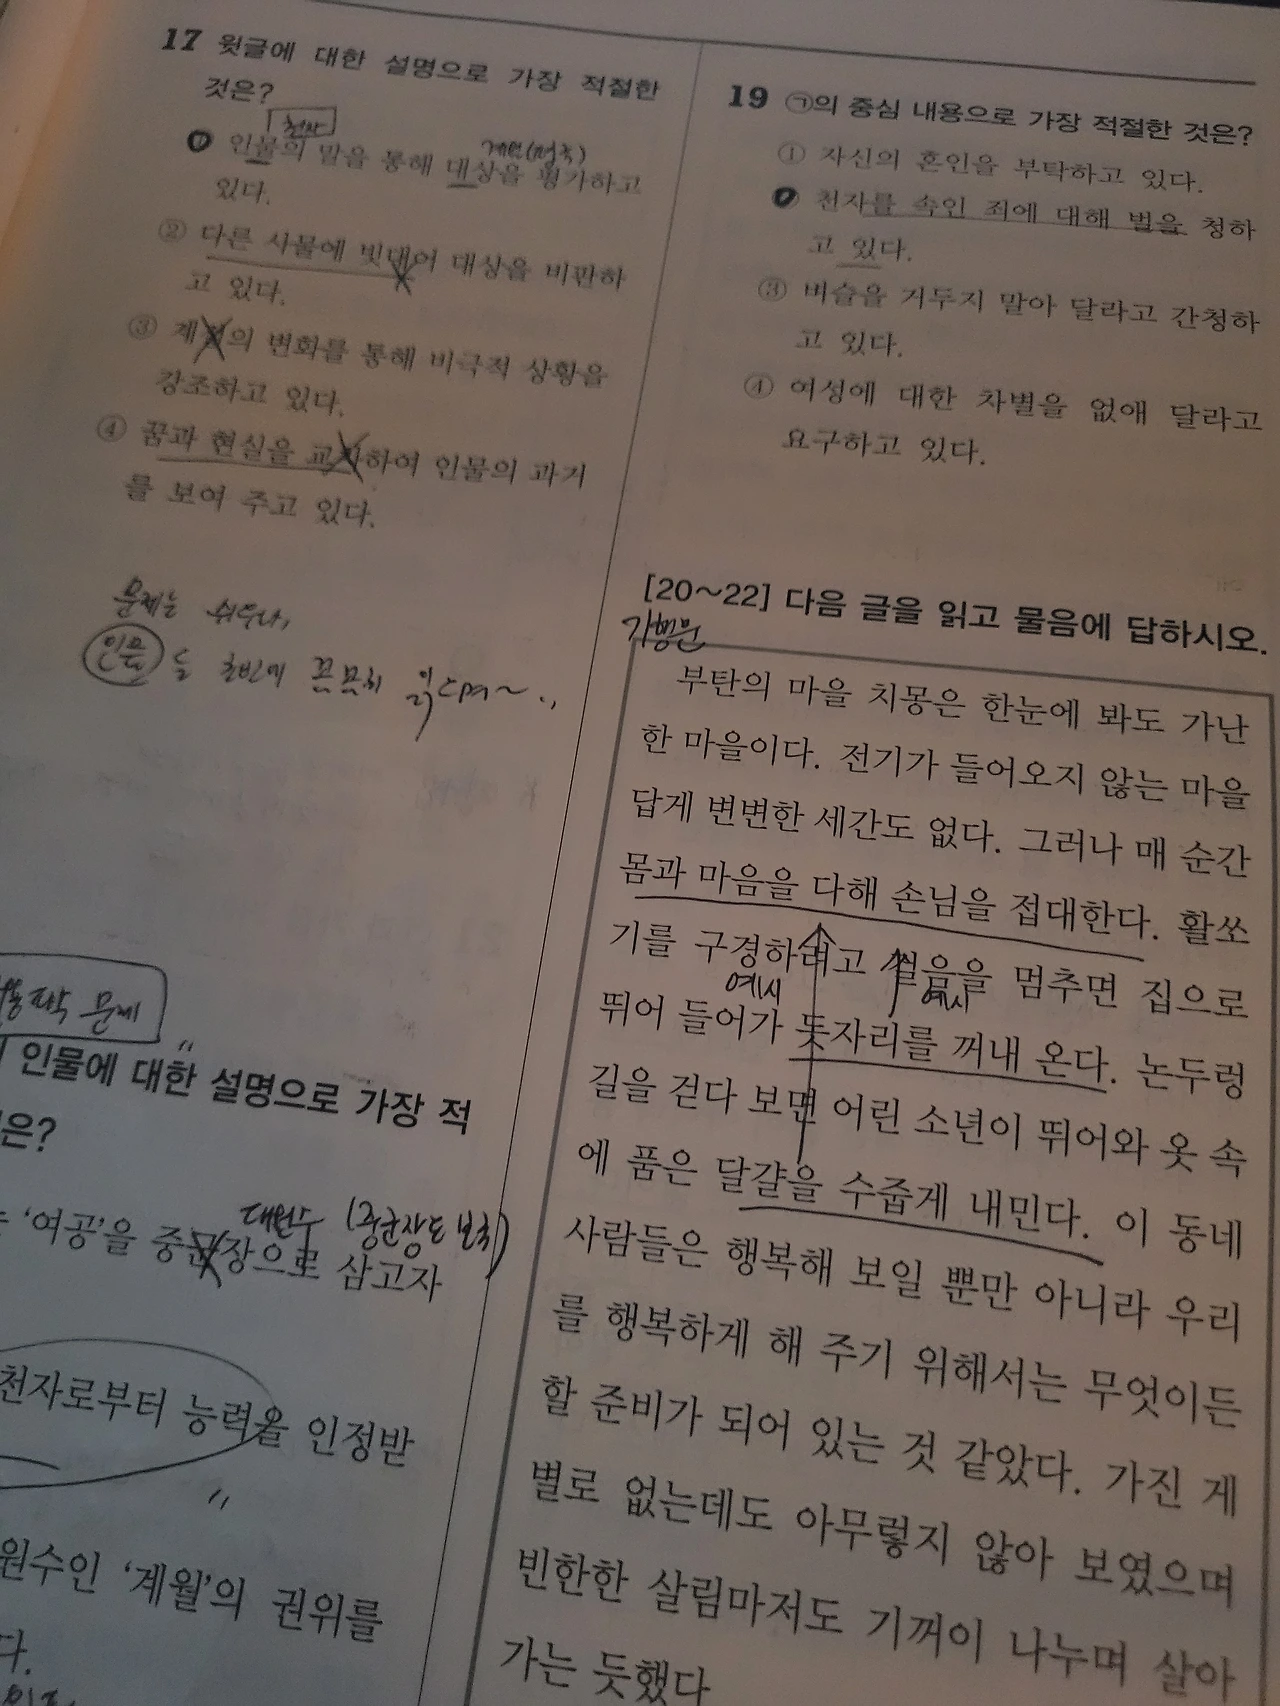 17 윗글에 대한 설명으로 가장 적절한
것은?
천자
계월(평국)
❶ 인물의 말을 통해 대상을 평가하고
있다.
② 다른 사물에 빗대어 대상을 비판하
고 있다.
③ 계절의 변화를 통해 비극적 상황을
강조하고 있다.
④ 꿈과 현실을 교차하여 인물의 과거
를 보여 주고 있다.
문제는 쉬우나,
인물 들 초반에 꼼꼼히
문제
인물에 대한 설명으로 가장 적
은?
대원수 (중군장도 보국)
'여공'을 중군장으로 삼고자
천자로부터 능력을 인정받
원수인 '계월'의 권위를
다.
19 ㉠의 중심 내용으로 가장 적절한 것은?
① 자신의 혼인을 부탁하고 있다.
❷ 천자를 속인 죄에 대해 벌을 청하
고 있다.
③ 벼슬을 거두지 말아 달라고 간청하
고 있다.
④ 여성에 대한 차별을 없애 달라고
요구하고 있다.
[20～22] 다음 글을 읽고 물음에 답하시오.
기행문
부탄의 마을 치몽은 한눈에 봐도 가난
한 마을이다. 전기가 들어오지 않는 마을
답게 변변한 세간도 없다. 그러나 매 순간
몸과 마음을 다해 손님을 접대한다. 활쏘
기를 구경하려고 걸음을 멈추면 집으로
예시
예시
뛰어 들어가 돗자리를 꺼내 온다. 논두렁
길을 걷다 보면 어린 소년이 뛰어와 옷 속
에 품은 달걀을 수줍게 내민다. 이 동네
사람들은 행복해 보일 뿐만 아니라 우리
를 행복하게 해 주기 위해서는 무엇이든
할 준비가 되어 있는 것 같았다. 가진 게
별로 없는데도 아무렇지 않아 보였으며
빈한한 살림마저도 기꺼이 나누며 살아
가는 듯했다